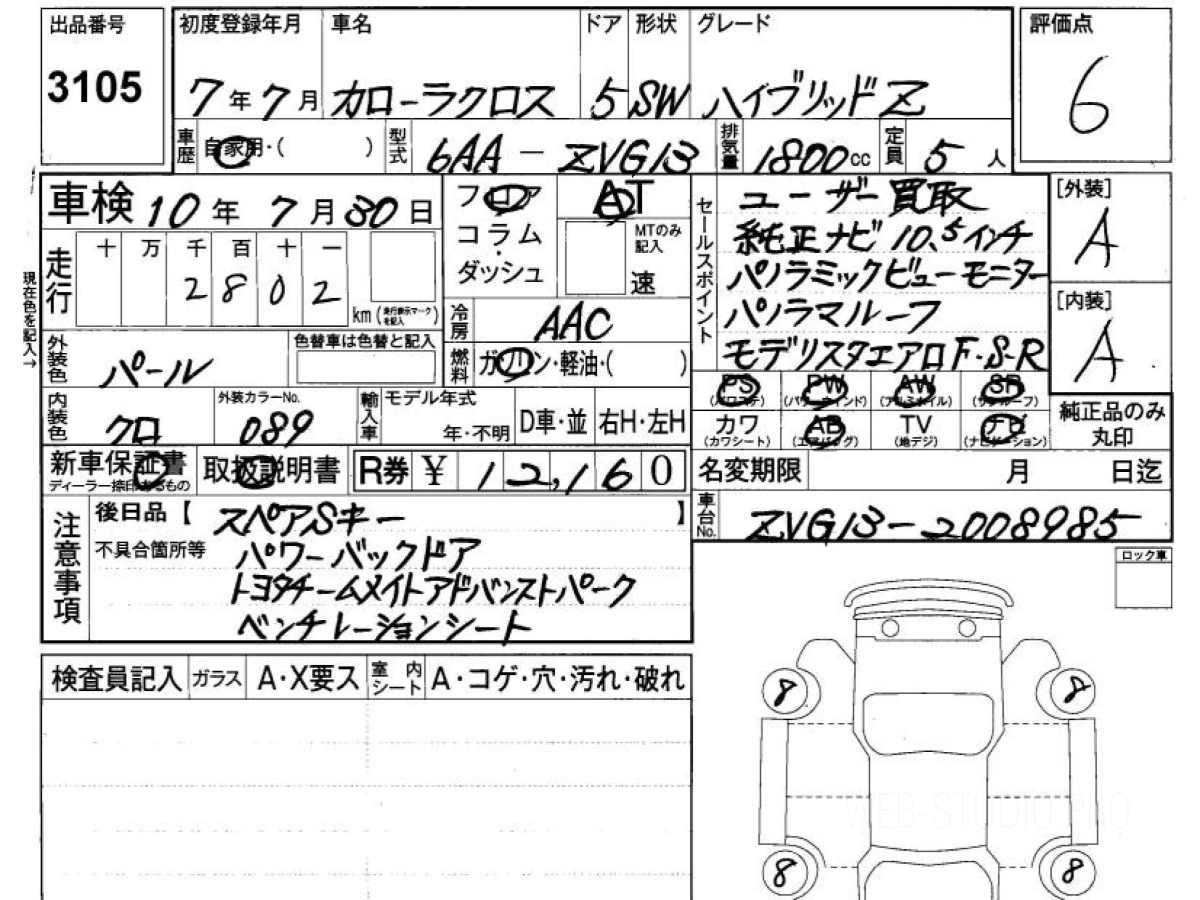 出品番号
3105
初度登録年月
7年7月
車名
カローラクロス
ドア
5
形状
SW
グレード
ハイブリッドZ
評価点
6
車歴
自家用・( )
型式
6AA-ZVG13
排気量
1800cc
定員
5人
車検 10年7月30日
フロア
コラム・
ダッシュ
AT
MTのみ記入
速
走行
十 万 千 百 十 一
2 8 0 2
km(走行表示マークを記入)
現在色を記入→
セールスポイント
ユーザー買取
純正ナビ10.5インチ
パノラミックビューモニター
パノラマルーフ
モデリスタエアロF・S・R
[外装]
A
[内装]
A
冷房
AAC
燃料
ガソリン・軽油・( )
外装色
パール
色替車は色替と記入
内装色
クロ
外装カラーNo.
089
輸入車
モデル年式
年・不明
D車・並
右H・左H
PS
(パワステ)
PW
(パワーウインド)
AW
(アルミホイル)
SR
(サンルーフ)
カワ
(カワシート)
AB
(エアバッグ)
TV
(地デジ)
ナビ
(ナビゲーション)
純正品のみ
丸印
新車保証書
ディーラー捺印あるもの
取扱説明書
R券 ¥ 12,160
名変期限 月 日迄
車台No.
ZVG13-2008985
注意事項
後日品【 スペアSキー 】
不具合箇所等
パワーバックドア
トヨタチームメイトアドバンストパーク
ベンチレーションシート
ロック車
検査員記入
ガラス
A・X要ス
室内シート
A・コゲ・穴・汚れ・破れ
8
8
WEB-STUDIO.PRO
8
8